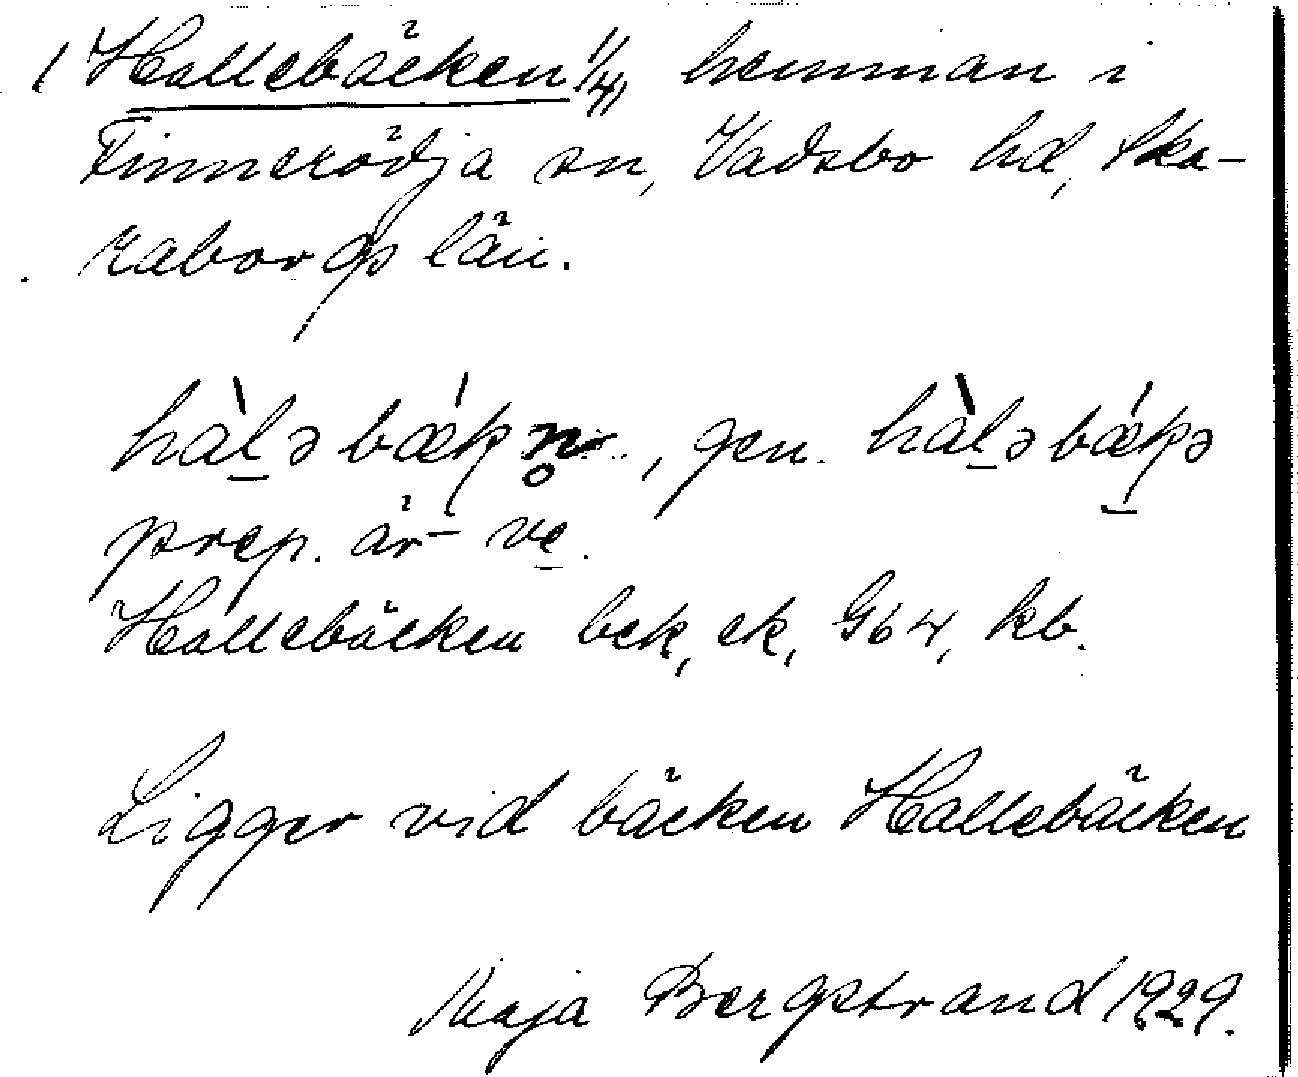 Hallebäcken 1/4, hemman i
Finnerödja sn, Vadsbo hd, Ska-
raborgs län.
hàl̲əbǽkn̥, gen. hàl̲əbǽk̲s
prep. är ve̲.
Hallebäcken bek, ek, G64, kb.
Ligger vid bäcken Hallebäcken
Maja Bergstrand 1929.